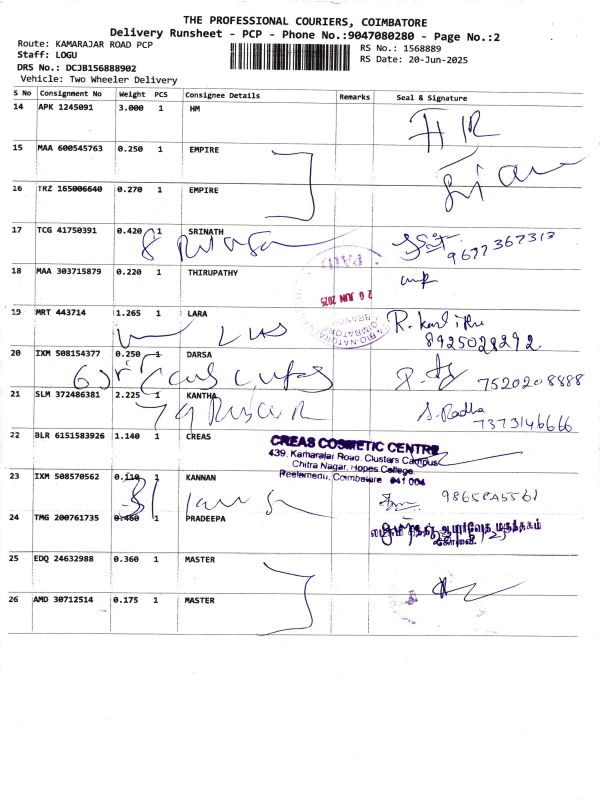 THE PROFESSIONAL COURIERS, COIMBATORE
Delivery Runsheet - PCP - Phone No.:9047080280 - Page No.:2
Route: KAMARAJAR ROAD PCP
Staff: LOGU
DRS No.: DCJB156888902
Vehicle: Two Wheeler Delivery
RS No.: 1568889
RS Date: 20-Jun-2025
S No Consignment No Weight PCS Consignee Details Remarks Seal & Signature
14 APK 1245091 3.000 1 HM
15 MAA 600545763 0.250 1 EMPIRE
16 TRZ 165006640 0.270 1 EMPIRE
17 TCG 41750391 0.420 1 SRINATH
9677367313
18 MAA 303715879 0.220 1 THIRUPATHY
PAID
20 JUN 2025
19 MRT 443714 1.265 1 LARA
8925028292
20 IXM 508154377 0.250 1 DARSA
7520208888
21 SLM 372486381 2.225 1 KANTHA
S. Radha
7373146666
22 BLR 6151583926 1.140 1 CREAS
CREAS COSMETIC CENTRE
439, Kamarajar Road, Clusters Campus
Chitra Nagar, Hopes College
Peelamedu, Coimbatore 641 004
23 IXM 508570562 0.110 1 KANNAN
24 TMG 200761735 0.460 1 PRADEEPA
25 EDQ 24632988 0.360 1 MASTER
26 AMD 30712514 0.175 1 MASTER